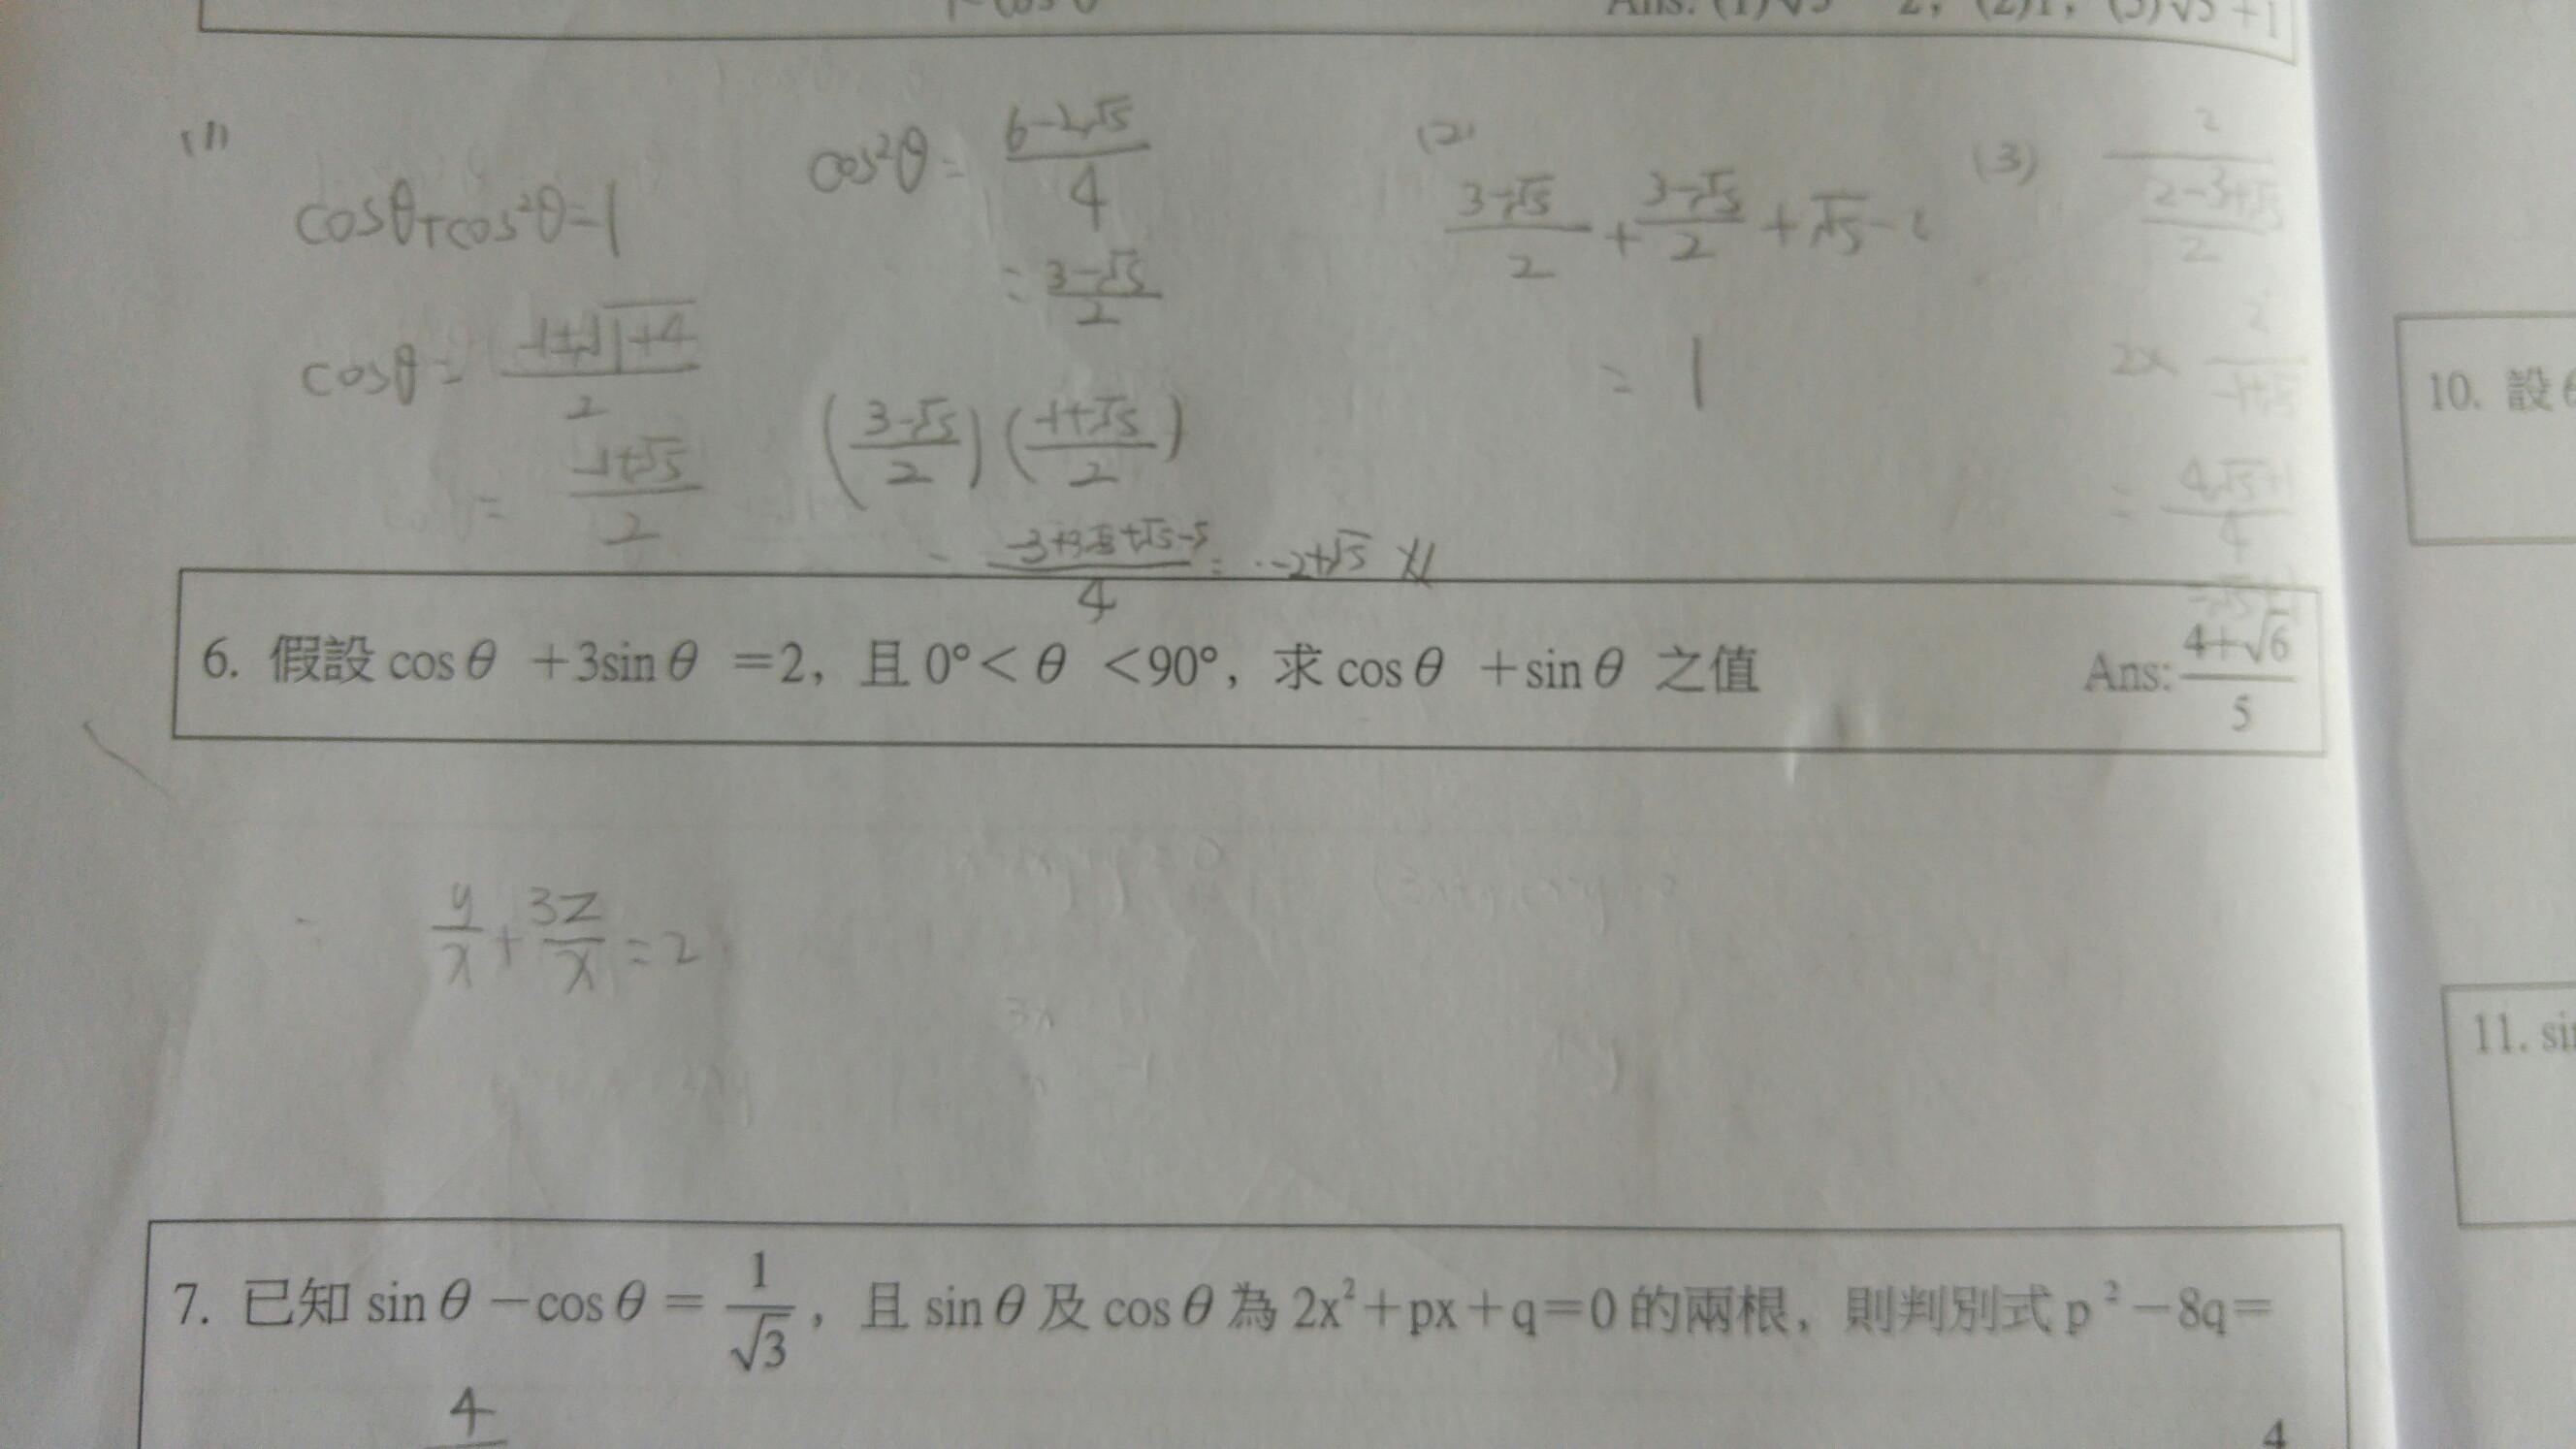 Ans: (1)√5 − 2, (2)1, (3)√5 +1
(1)
cosθ+cos²θ=1
cosθ= (-1±√1+4)/2
= (-1+√5)/2
cos²θ= (6-2√5)/4
= (3-√5)/2
((3-√5)/2)((-1+√5)/2)
= (-3+3√5+√5-5)/4 = -2+√5
(2)
(3-√5)/2 + (3-√5)/2 + √5-1
= 1
(3)
2/((2-3+√5)/2)
2× 2/(-1+√5)
= 4√5+1/4
=√5+1
6. 假設 cosθ +3sinθ =2, 且 0°< θ <90°, 求 cosθ +sinθ 之值 Ans: (4+√6)/5
y/x + 3z/x = 2
7. 已知 sinθ−cosθ= 1/√3, 且 sinθ及 cosθ為 2x²+px+q=0 的兩根, 則判別式 p²−8q=
4
4
10. 設
11. sin